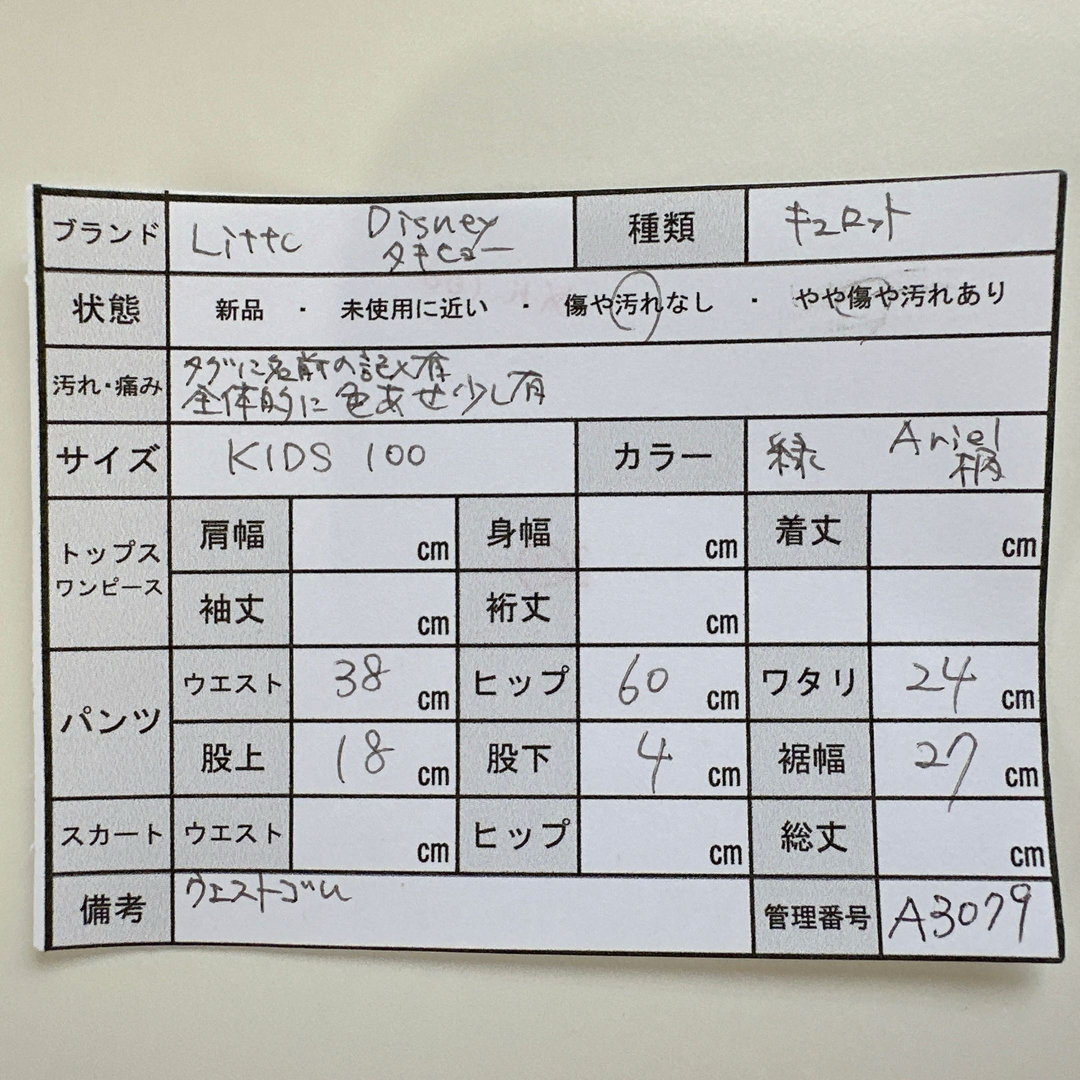 ブランド Littc Disney 種類 キュロット
タキヒョー
状態 新品 ・ 未使用に近い ・ 傷や汚れなし ・ やや傷や汚れあり
汚れ・痛み タグに名前の記入有
全体的に色あせ少し有
サイズ KIDS 100 カラー 緑 Ariel
柄
トップス ワンピース 肩幅 cm 身幅 cm 着丈 cm
袖丈 cm 裄丈 cm
パンツ ウエスト 38 cm ヒップ 60 cm ワタリ 24 cm
股上 18 cm 股下 4 cm 裾幅 27 cm
スカート ウエスト cm ヒップ cm 総丈 cm
備考 ウエストゴム 管理番号 A3079